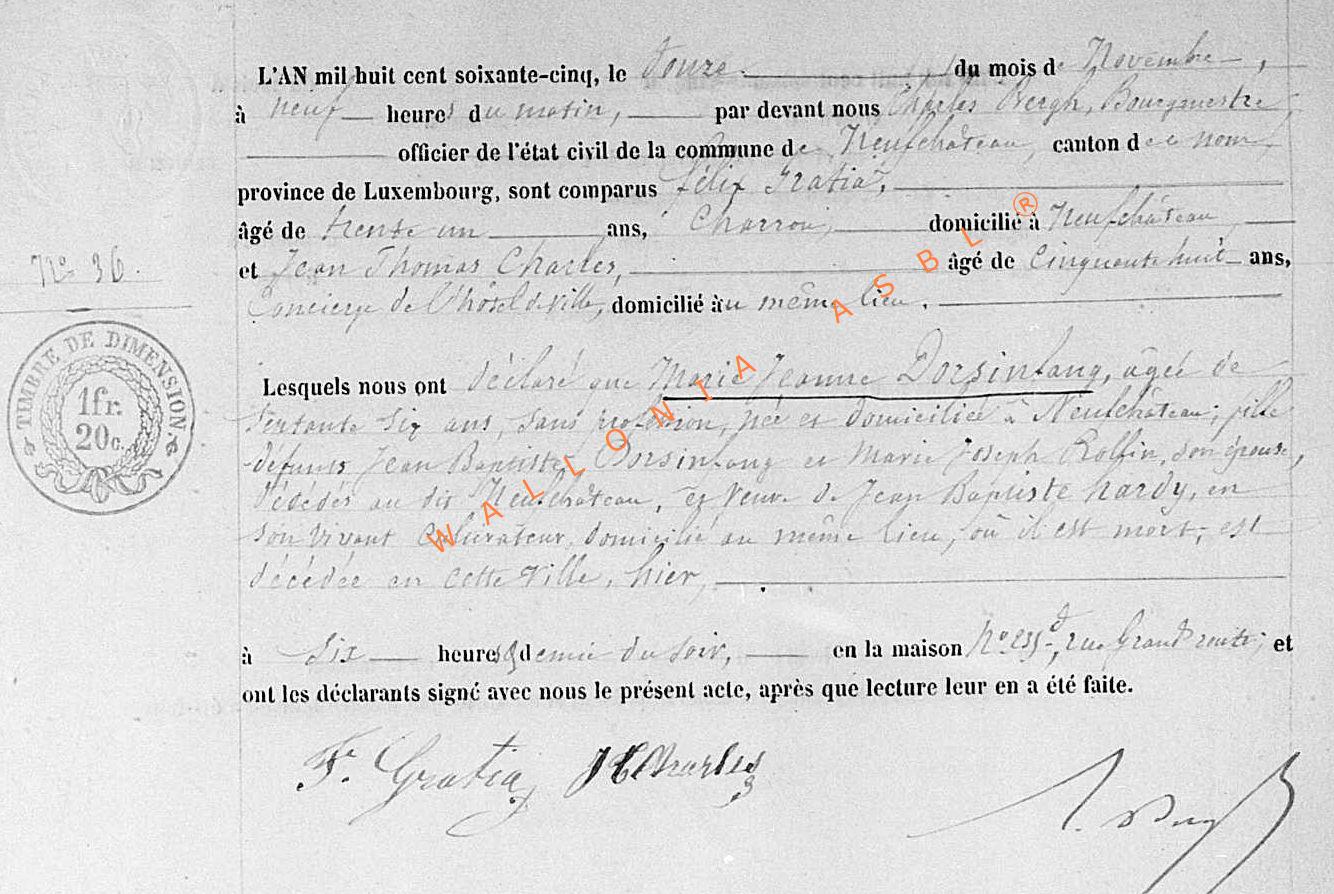 L'AN mil huit cent soixante-cinq, le Douze du mois de Novembre,
à neuf heures du matin, par devant nous Charles Bergh, Bourgmestre,
officier de l'état civil de la commune de Neufchâteau, canton de ce nom,
province de Luxembourg, sont comparus Félix Gratia,
âgé de trente un ans, Charron, domicilié à Neufchâteau,
et Jean Thomas Charles, âgé de Cinquante huit ans,
Concierge de l'hôtel de ville, domicilié au même lieu.
N° 36.
TIMBRE DE DIMENSION
1fr.
20c.
Lesquels nous ont déclaré que Marie Jeanne Dorsinfang, âgée de
Septante Six ans, sans profession, née et domiciliée à Neufchâteau, fille
défunts Jean Baptiste Dorsinfang et Marie Joseph Rolfin, son épouse,
décédés au dit Neufchâteau, et Veuve de Jean Baptiste hardy, en
son vivant Cultivateur, domicilié au même lieu, où il est mort, est
décédée en cette Ville, hier,
à Six heures & demie du soir, en la maison N° rue Grand'route; et
ont les déclarants signé avec nous le présent acte, après que lecture leur en a été faite.
F. Gratia JTCharles
WALLONIA ASBL ®